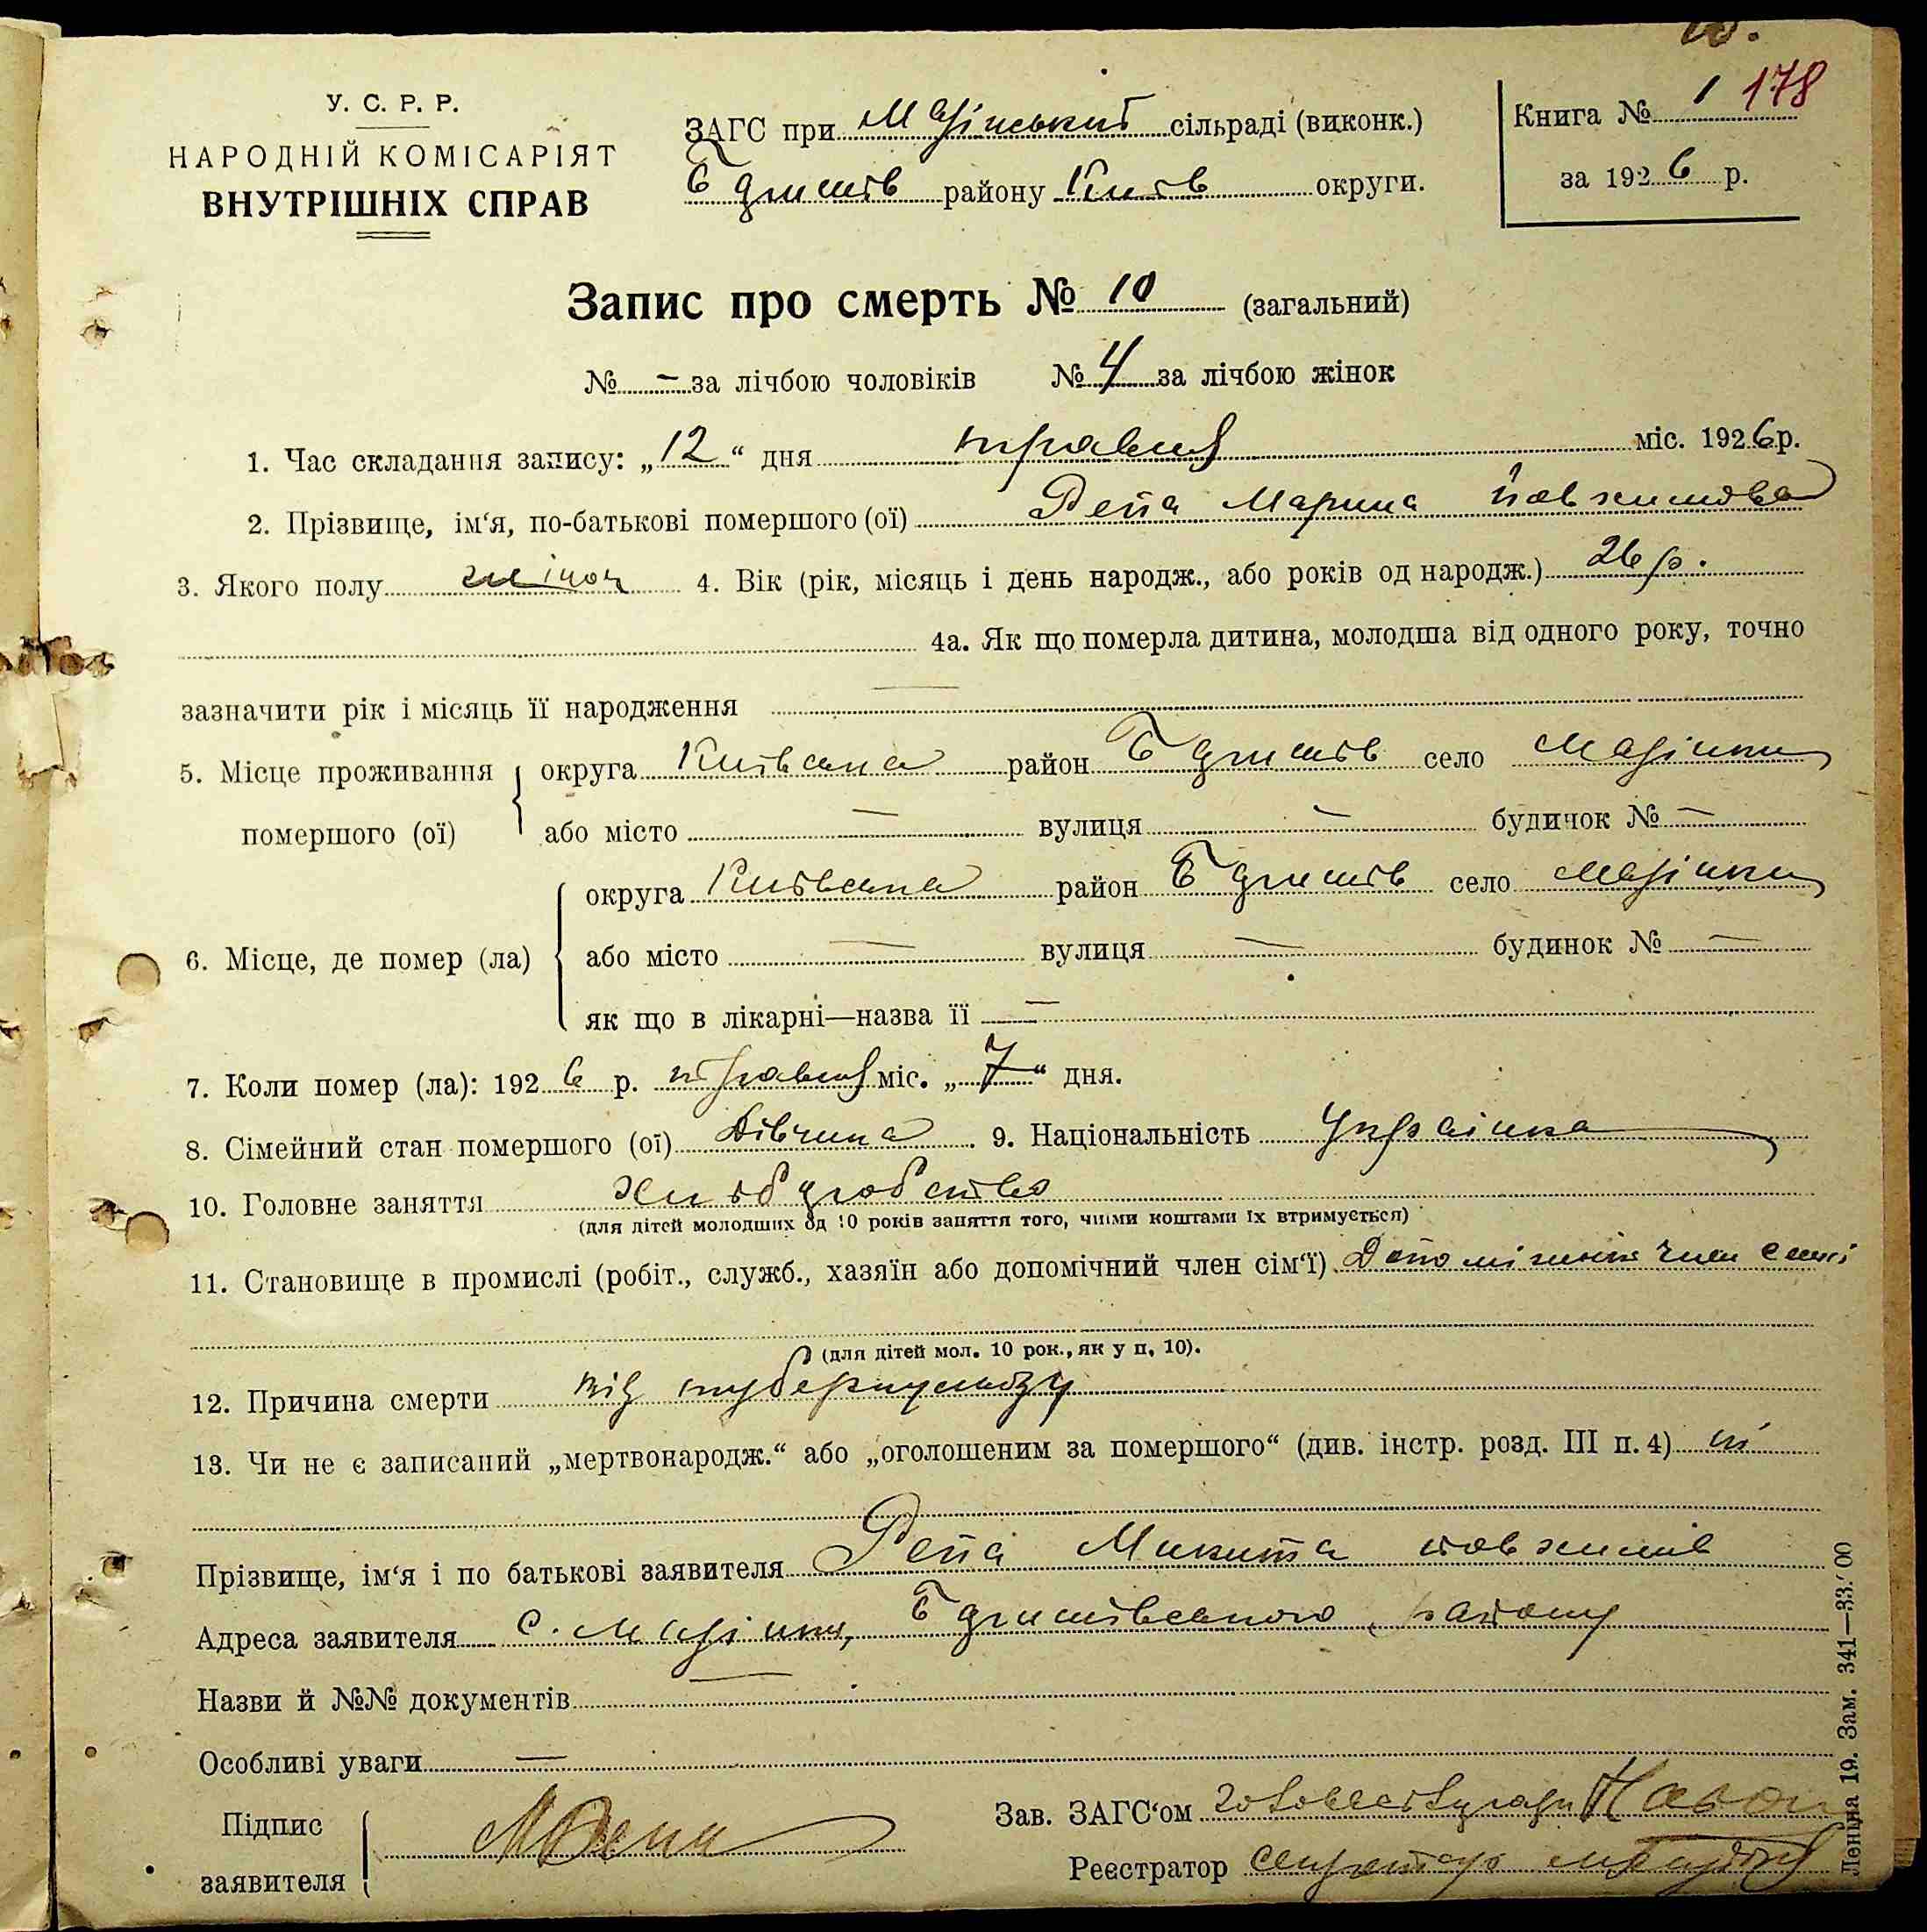 У. С. Р. Р.
НАРОДНІЙ КОМІСАРІЯТ
ВНУТРІШНІХ СПРАВ
ЗАГС при сільраді (виконк.)
району Київ округи.
Книга № 1 178
за 1926 р.
Запис про смерть № 10 (загальний)
№ – за лічбою чоловіків № 4 за лічбою жінок
1. Час складання запису: „12“ дня травня міс. 1926 р.
2. Прізвище, ім‘я, по-батькові помершого (ої) Репа Марина
3. Якого полу жіноч 4. Вік (рік, місяць і день народж., або років од народж.) 26 р.
4а. Як що померла дитина, молодша від одного року, точно
зазначити рік і місяць її народження —
5. Місце проживання помершого (ої) округа Київська район село
або місто — вулиця — будинок № —
6. Місце, де помер (ла) округа Київська район село
або місто — вулиця — будинок № —
як що в лікарні—назва її —
7. Коли помер (ла): 1926 р. травня міс. „7“ дня.
8. Сімейний стан помершого (ої) Дівчина 9. Національність Українка
10. Головне заняття хліборобство
(для дітей молодших од 10 років заняття того, чиїми коштами їх втримується)
11. Становище в промислі (робіт., служб., хазяїн або допомічний член сім‘ї) Допоміжний член сем‘ї
(для дітей мол. 10 рок., як у п. 10).
12. Причина смерти від туберкульозу
13. Чи не є записаний „мертвонародж.“ або „оголошеним за помершого“ (див. інстр. розд. III п. 4) ні
Прізвище, ім‘я і по батькові заявителя Репа Микита
Адреса заявителя с. району
Назви й №№ документів —
Особливі уваги —
Підпис заявителя М Репа
Зав. ЗАГС‘ом
Реєстратор секретар
Зам. 341—33.